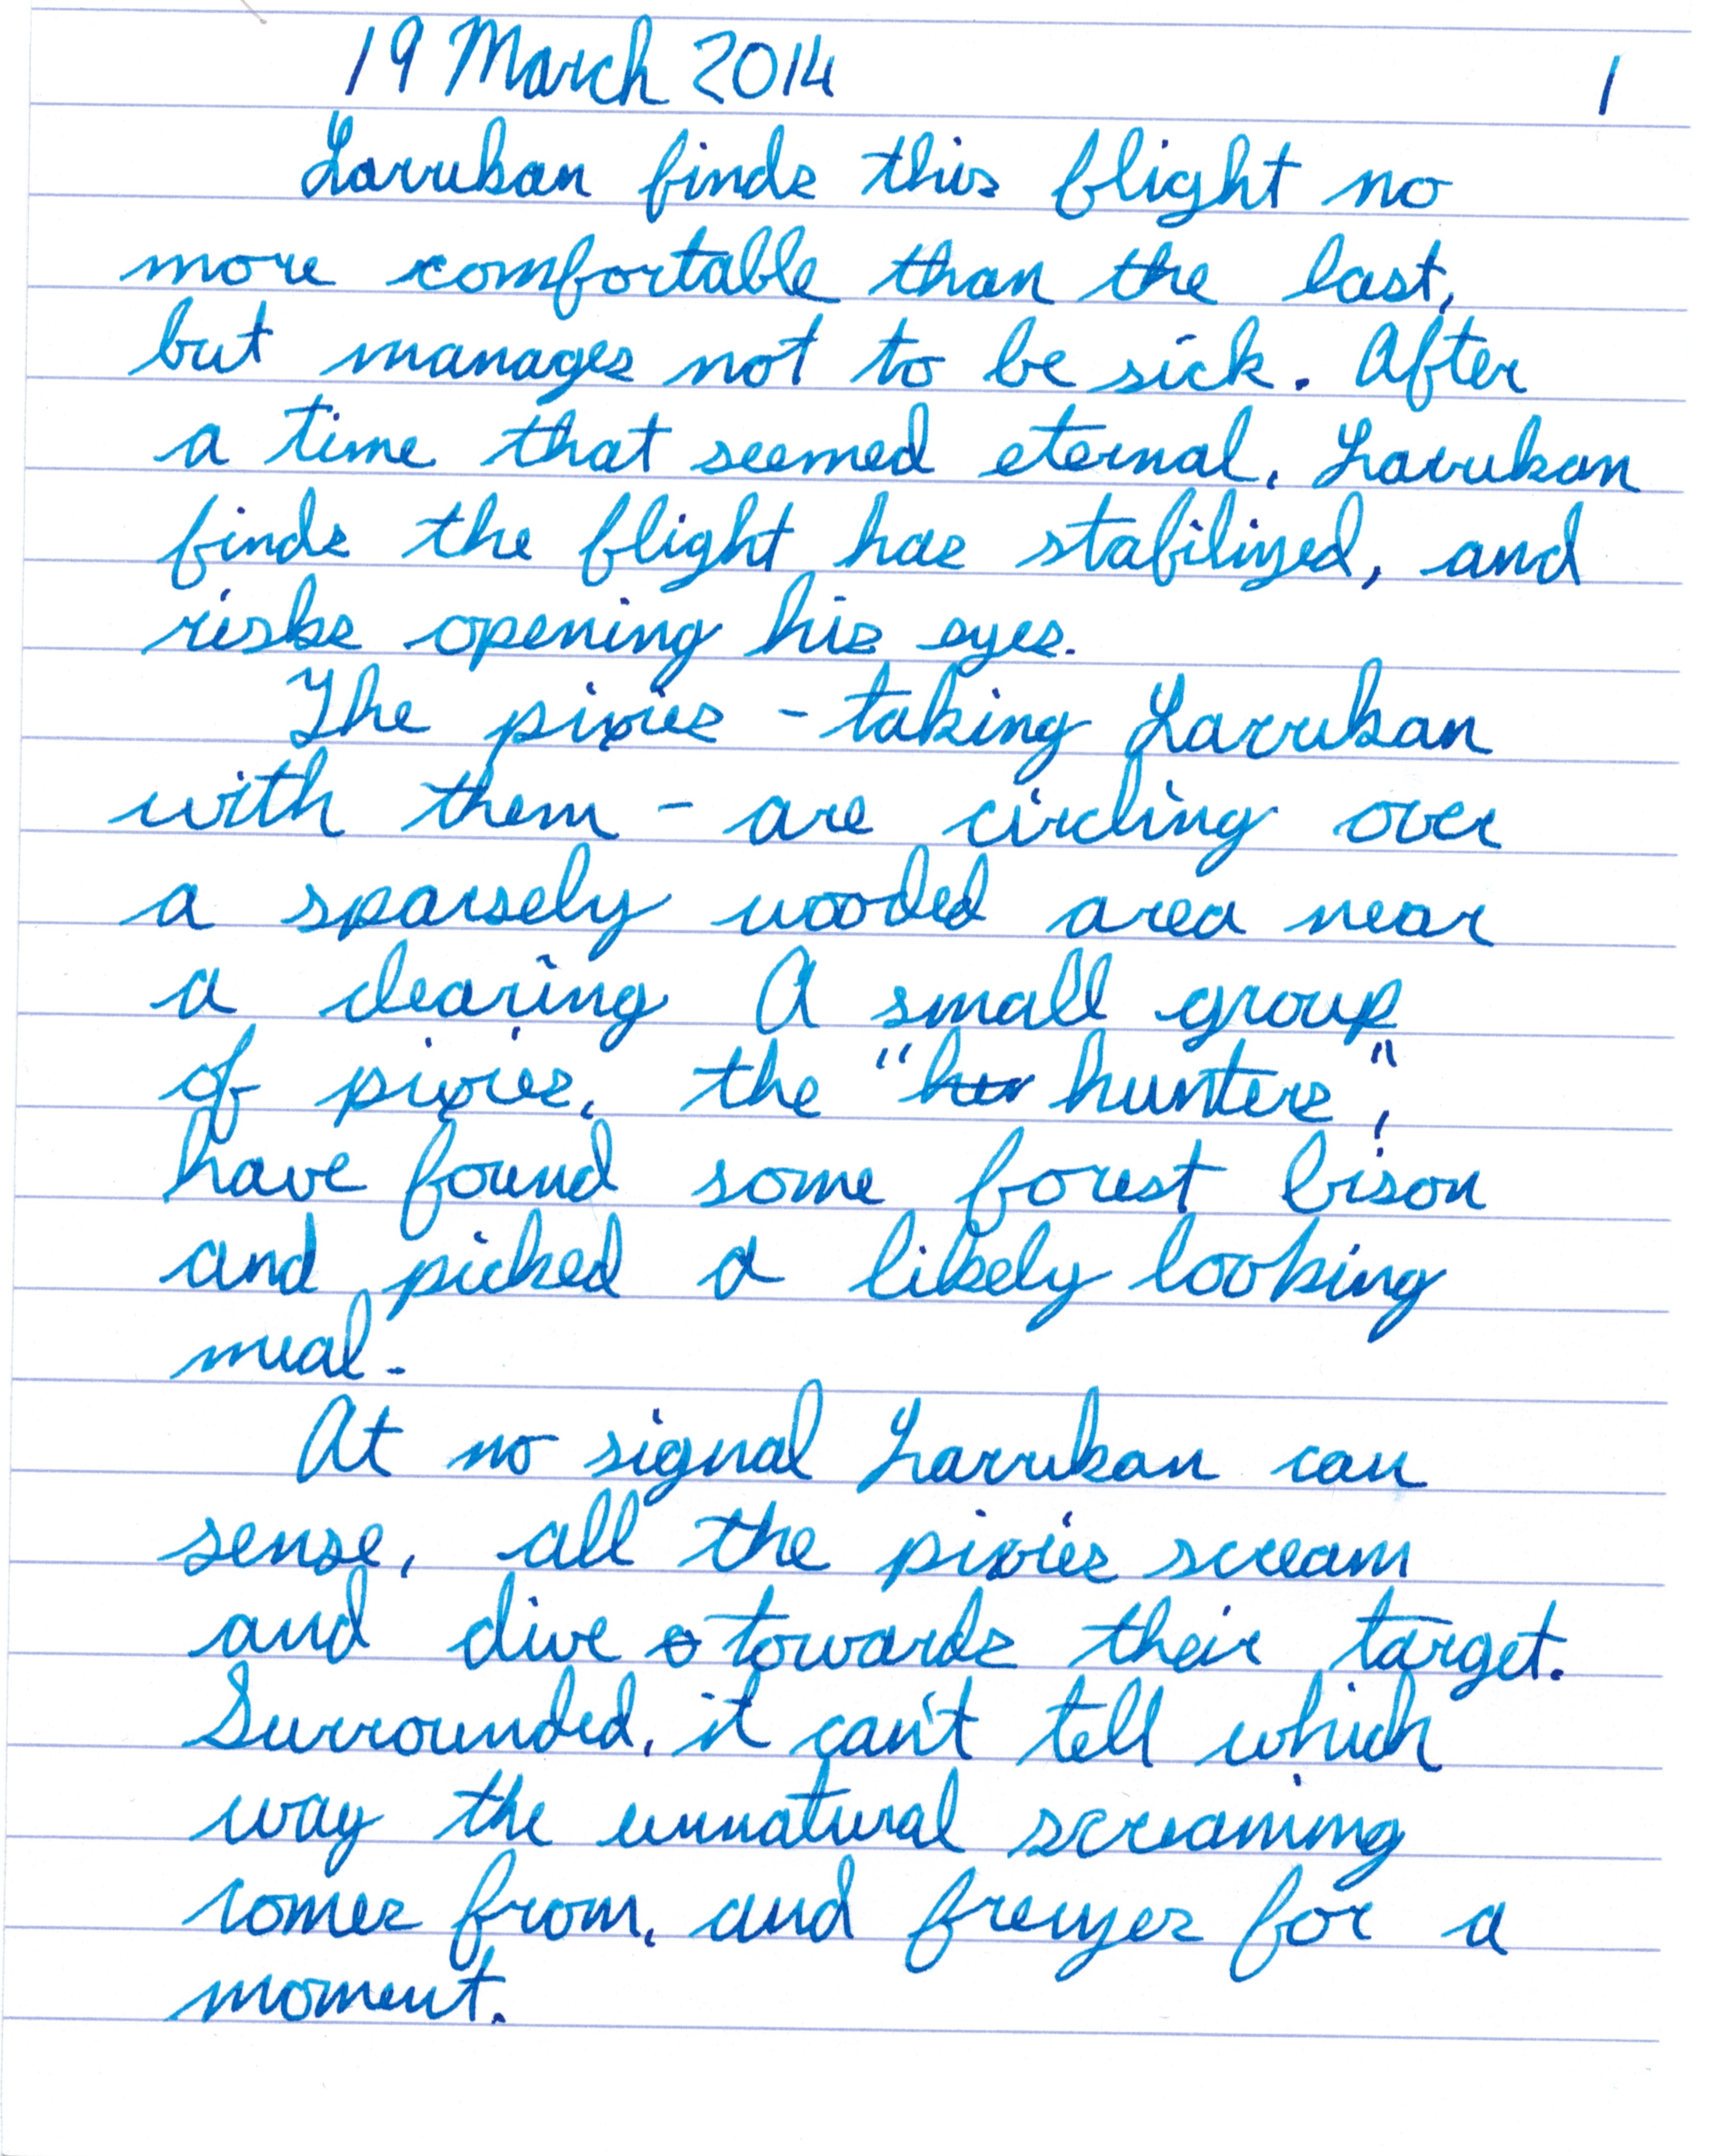 19 March 2014 1
Larukan finds this flight no
more comfortable than the last,
but manages not to be sick. After
a time that seemed eternal, Larukan
finds the flight has stabilized, and
risks opening his eyes.
The pixies - taking Larukan
with them - are circling over
a sparsely wooded area near
a clearing A small group
of pixies, the "her hunters",
have found some forest bison
and picked a likely looking
meal.
At no signal Larukan can
sense, all the pixies scream
and dive towards their target.
Surrounded, it can't tell which
way the unnatural screaming
comes from, and freezes for a
moment.